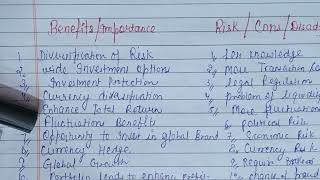 Benefits/Importance
Risk / Cons/Disad
1. Diversification of Risk
1. Less knowledge
2. wide Investment Options
2. More Transaction Co
3. Investment Protection
3. Legal Regulation
4. Currency diversification
4. Problem of liquidity
5. Enhance Total Return
5. More fluctuation
Fluctuation Benefits
6. Political Risk
7. Opportunity to Invest in global Brand
7. Economic Risk
8. Currency Hedge
8. Currency Risk
9. Global Growth
9. Require
Portfolio tends to enhance
10. chance of fraud